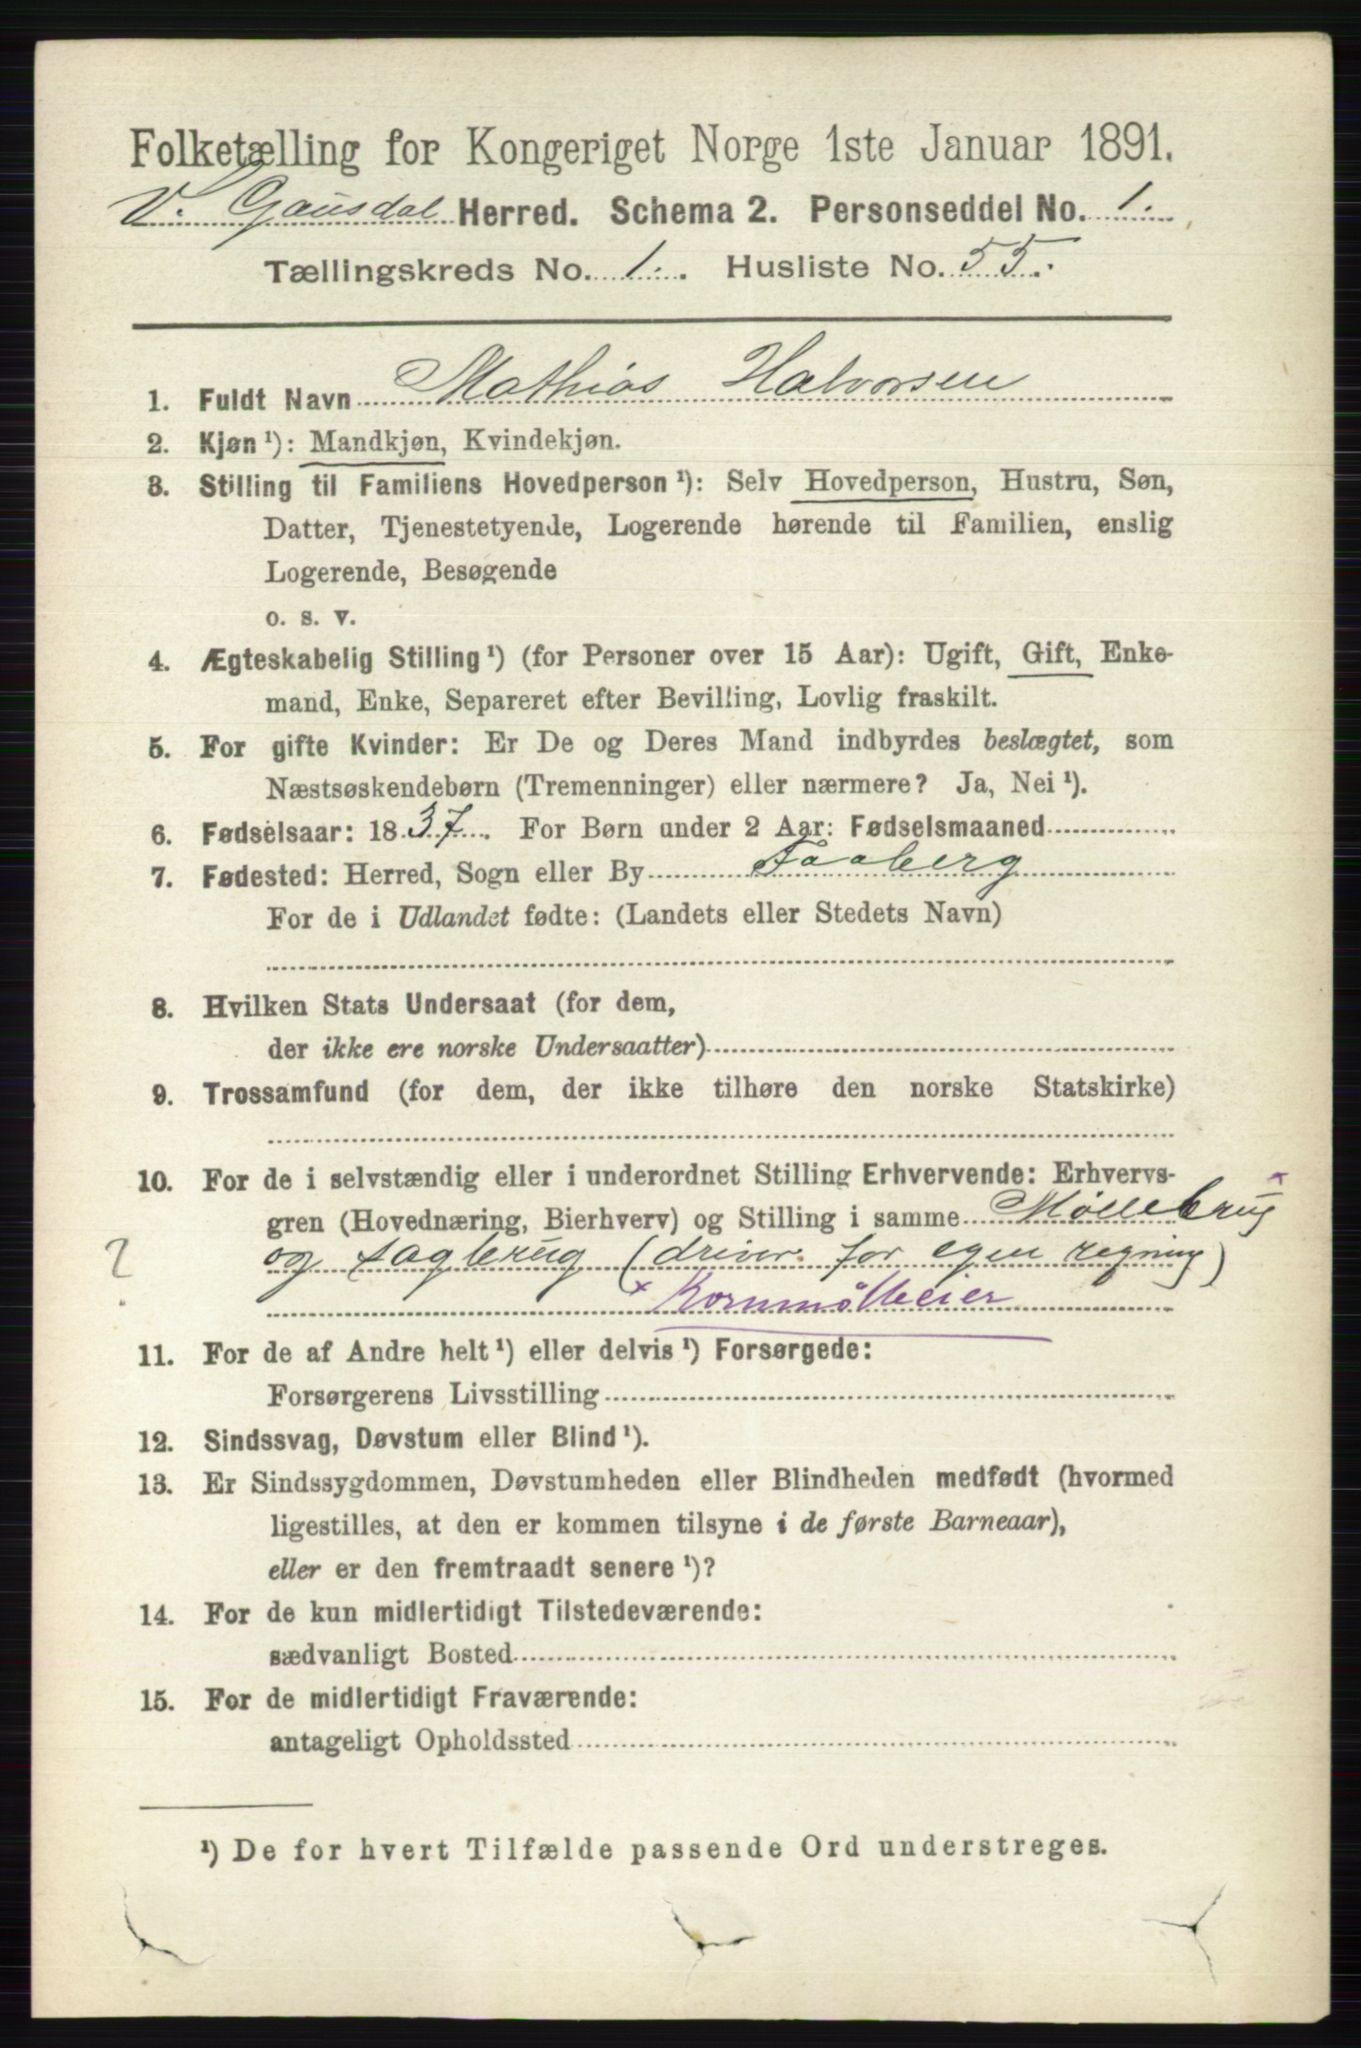 Folketælling for Kongeriget Norge 1ste Januar 1891.
V. Gausdal Herred. Schema 2. Personseddel No. 1.
Tællingskreds No. 1. Husliste No. 55.
1. Fuldt Navn Mathias Halvorsen
2. Kjøn ¹): Mandkjøn, Kvindekjøn.
3. Stilling til Familiens Hovedperson ¹): Selv Hovedperson, Hustru, Søn,
Datter, Tjenestetyende, Logerende hørende til Familien, enslig
Logerende, Besøgende
o. s. v.
4. Ægteskabelig Stilling ¹) (for Personer over 15 Aar): Ugift, Gift, Enke-
mand, Enke, Separeret efter Bevilling, Lovlig fraskilt.
5. For gifte Kvinder: Er De og Deres Mand indbyrdes beslægtet, som
Næstsøskendebørn (Tremenninger) eller nærmere? Ja, Nei ¹).
6. Fødselsaar: 1837. For Børn under 2 Aar: Fødselsmaaned
7. Fødested: Herred, Sogn eller By Faaberg
For de i Udlandet fødte: (Landets eller Stedets Navn)
8. Hvilken Stats Undersaat (for dem,
der ikke ere norske Undersaatter)
9. Trossamfund (for dem, der ikke tilhøre den norske Statskirke)
10. For de i selvstændig eller i underordnet Stilling Erhvervende: Erhvervs-
gren (Hovednæring, Bierhverv) og Stilling i samme Møllebrug ×
? og sagbrug (driver for egen regning)
× Kornmølleeier
11. For de af Andre helt ¹) eller delvis ¹) Forsørgede:
Forsørgerens Livsstilling
12. Sindssvag, Døvstum eller Blind ¹).
13. Er Sindssygdommen, Døvstumheden eller Blindheden medfødt (hvormed
ligestilles, at den er kommen tilsyne i de første Barneaar),
eller er den fremtraadt senere ¹)?
14. For de kun midlertidigt Tilstedeværende:
sædvanligt Bosted
15. For de midlertidigt Fraværende:
antageligt Opholdssted
¹) De for hvert Tilfælde passende Ord understreges.